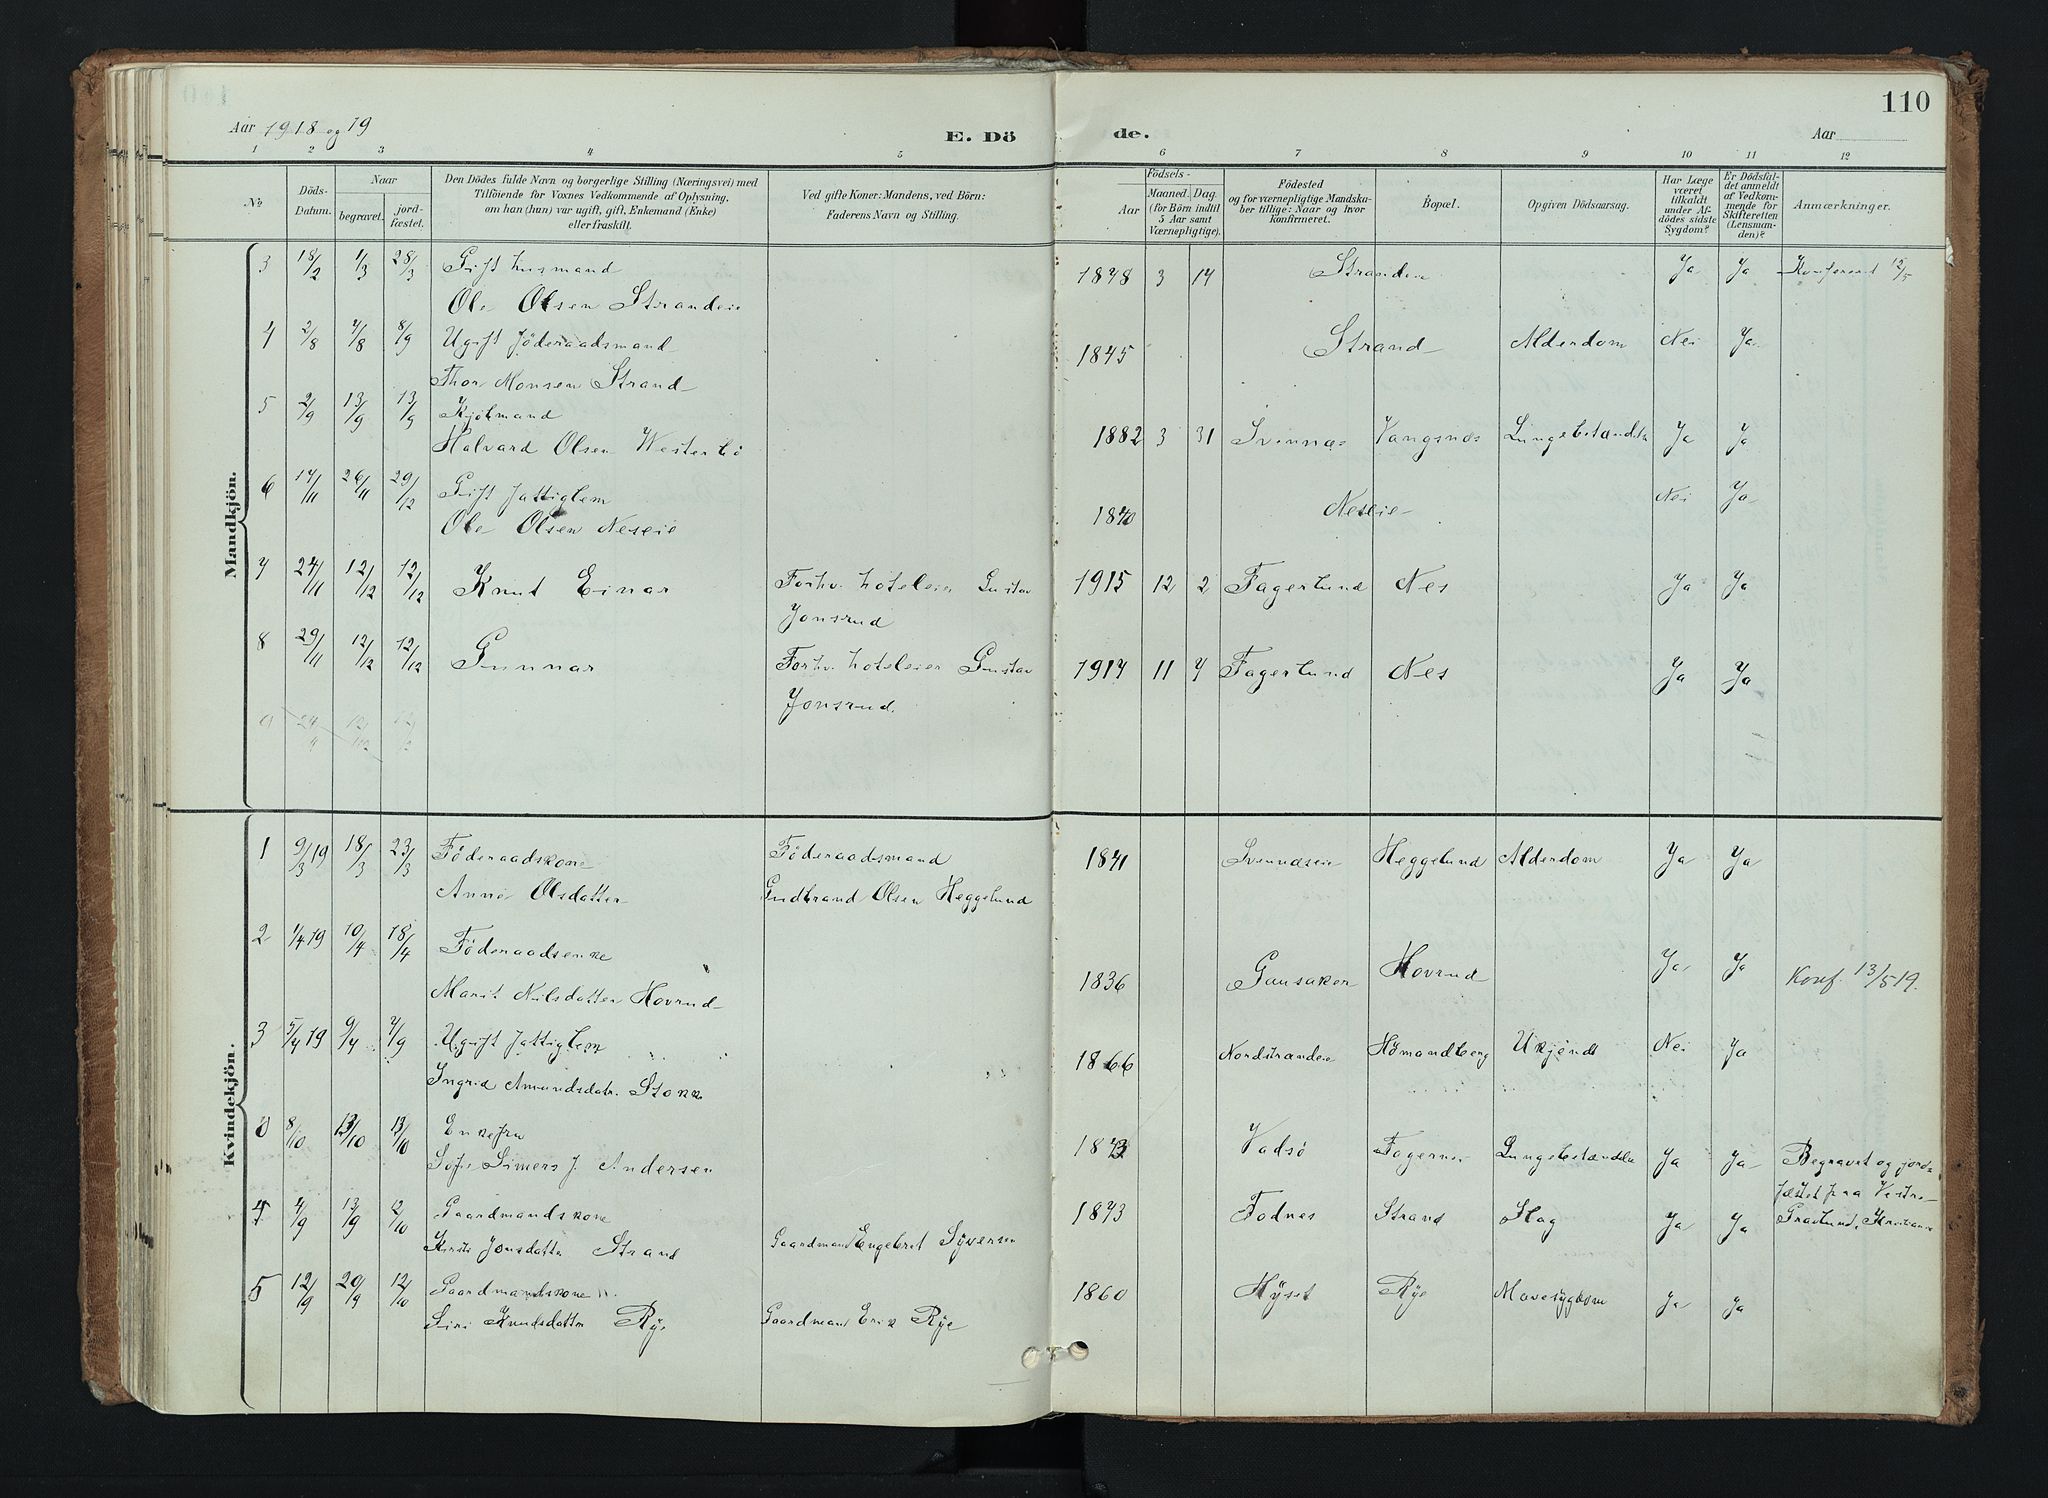 110
Aar 1918 og 19
E. Döde.
Aar
1 2 3 4 5 6 7 8 9 10 11 12
№
Döds-Datum.
Naar
begravet.
jord-fæstet.
Den Dödes fulde Navn og borgerlige Stilling (Næringsvei) med
Tilföiende for Voxnes Vedkommende af Oplysning,
om han (hun) var ugift, gift, Enkemand (Enke)
eller fraskilt.
Ved gifte Koner: Mandens, ved Börn:
Faderens Navn og Stilling.
Födsels-
Aar
Maaned. Dag.
(for Börn indtil
5 Aar samt
Værnepligtige).
Födested
og for værnepligtige Mandska-
ber tillige: Naar og hvor
konfirmeret.
Bopæl.
Opgiven Dödsaarsag.
Har Læge
været
tilkaldt
under Af-
dödes sidste
Sygdom?
Er Dödsfal-
det anmeldt
af Vedkom-
mende for
Skifteretten
(Lensman-
den)?
Anmærkninger.
Mandkjön.
3 18/2 1/3 28/3 Gift husmand 1848 3 14 Strandeie Ja Ja 12/5
Ole Olsen Strandeie
4 2/8 7/8 8/9 Ugift föderaadsmand 1845 Strand Alderdom Nei Ja
Thor Monsen Strand
5 2/9 13/9 13/9 Kjöbmand
Halvard Olsen Westerbö 1882 3 31 Svennæs Vangsnes Ja Ja
6 14/11 26/11 29/12 Gift fattiglem Nei Ja
Ole Olsen Neseie 1840 Neseie
7 24/11 12/12 12/12 Knut Einar Forhv. hoteleier Gustav 1915 12 2 Fagerlund Nes Ja Ja
Jonsrud
8 29/11 12/12 12/12 Gunnar Forhv. hoteleier Gustav 1914 11 7 Fagerlund Nes Ja Ja
Jonsrud.
Kvindekjön.
1 9/3 19 18/3 23/3 Föderaadskone Föderaadsmand 1841 Svennæseie Heggelund Alderdom Ja Ja
Anne Olsdatter Gudbrand Olsen Heggelund
2 1/4 19 10/4 18/4 Föderaadsenke
Marit Nilsdatter Hovrud 1836 Gausaker Hovrud Ja Ja Konf. 13/5 19.
3 5/4 19 9/4 7/9 Ugift fattiglem
Ingrid Amundsdatr. Stokk 1866 Nordstrandeie Ukjendt Nei Ja
3 8/10 13/10 13/10 Enkefru
J. Andersen 1843 Vadsö Fagernes Ja Ja Begravet og jord-
fæstet fra Vestre
4 4/9 13/9 12/10 Gaardmandskone 1843 Fodnes Strand Slag Ja Ja Gravlund,
Kirsti Jonsdatter Strand Gaardmand Engebret Syversen
5 12/9 20/9 12/10 Gaardmandskone 1860 Rye Mavesygdom Ja Ja
Siri Knudsdatter Rye Gaardmand Erik Rye